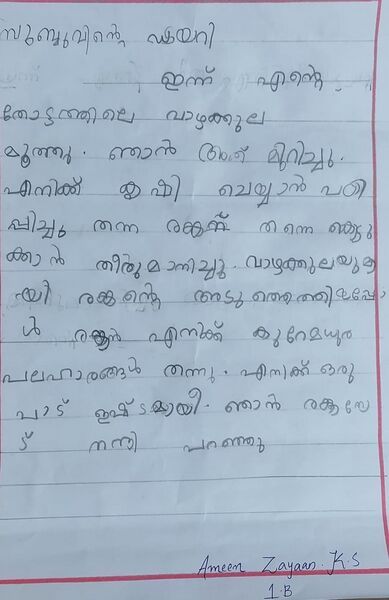 സുബ്ബുവിന്റെ ഡയറി
ഇന്ന് എന്റെ
തോട്ടത്തിലെ വാഴക്കുല
മൂത്തു. ഞാൻ അത് മുറിച്ചു.
എനിക്ക് കൃഷി ചെയ്യാൻ പഠി
പ്പിച്ചു തന്ന രങ്കന് തന്നെ കൊടു
ക്കാൻ തീരുമാനിച്ചു. വാഴക്കുലയുമാ
യി രങ്കന്റെ അടുത്തെത്തിയപ്പോ
ൾ രങ്കൻ എനിക്ക് കുറേമധുര
പലഹാരങ്ങൾ തന്നു. എനിക്ക് ഒരു
പാട് ഇഷ്ടമായി. ഞാൻ രങ്കനോ
ട് നന്ദി പറഞ്ഞു
Ameen Zayaan. K.S
1.B